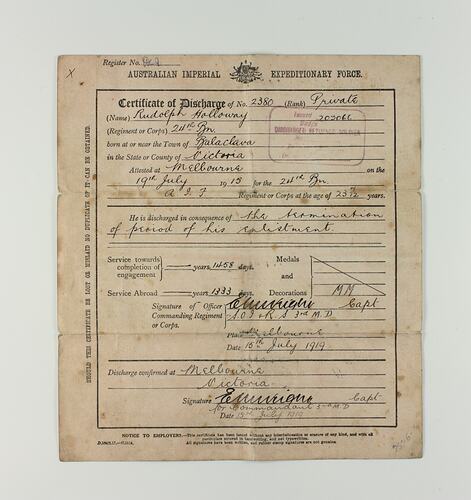 Register No.
X
AUSTRALIAN IMPERIAL EXPEDITIONARY FORCE.
Certificate of Discharge of No. 2380 (Rank) Private
(Name) Rudolph Holloway
203066
(Regiment or Corps) 24th Bn.
born at or near the Town of Balaclava
in the State or County of Victoria
Attested at Melbourne on the
19th July 1915 for the 24th Bn.
A.I.F. Regiment or Corps at the age of 23 7/12 years.
He is discharged in consequence of the termination
of period of his enlistment.
Service towards completion of engagement years, 1458 days.
Medals and Decorations MM
Service Abroad years, 1333 days.
Signature of Officer Commanding Regiment or Corps. Capt
S.O.I. & R.S. 3rd M.D
Place Melbourne
Date 15th July 1919
Discharge confirmed at Melbourne
Victoria
Signature Capt
for Commandant 3rd M.D
Date 15th July 1919
NOTICE TO EMPLOYERS.—This certificate has been issued without any interlineation or erasure of any kind, and with all
particulars entered in handwriting, and not typewritten.
All signatures have been written, and rubber stamp signatures are not genuine.
SHOULD THIS CERTIFICATE BE LOST OR MISLAID NO DUPLICATE OF IT CAN BE OBTAINED.